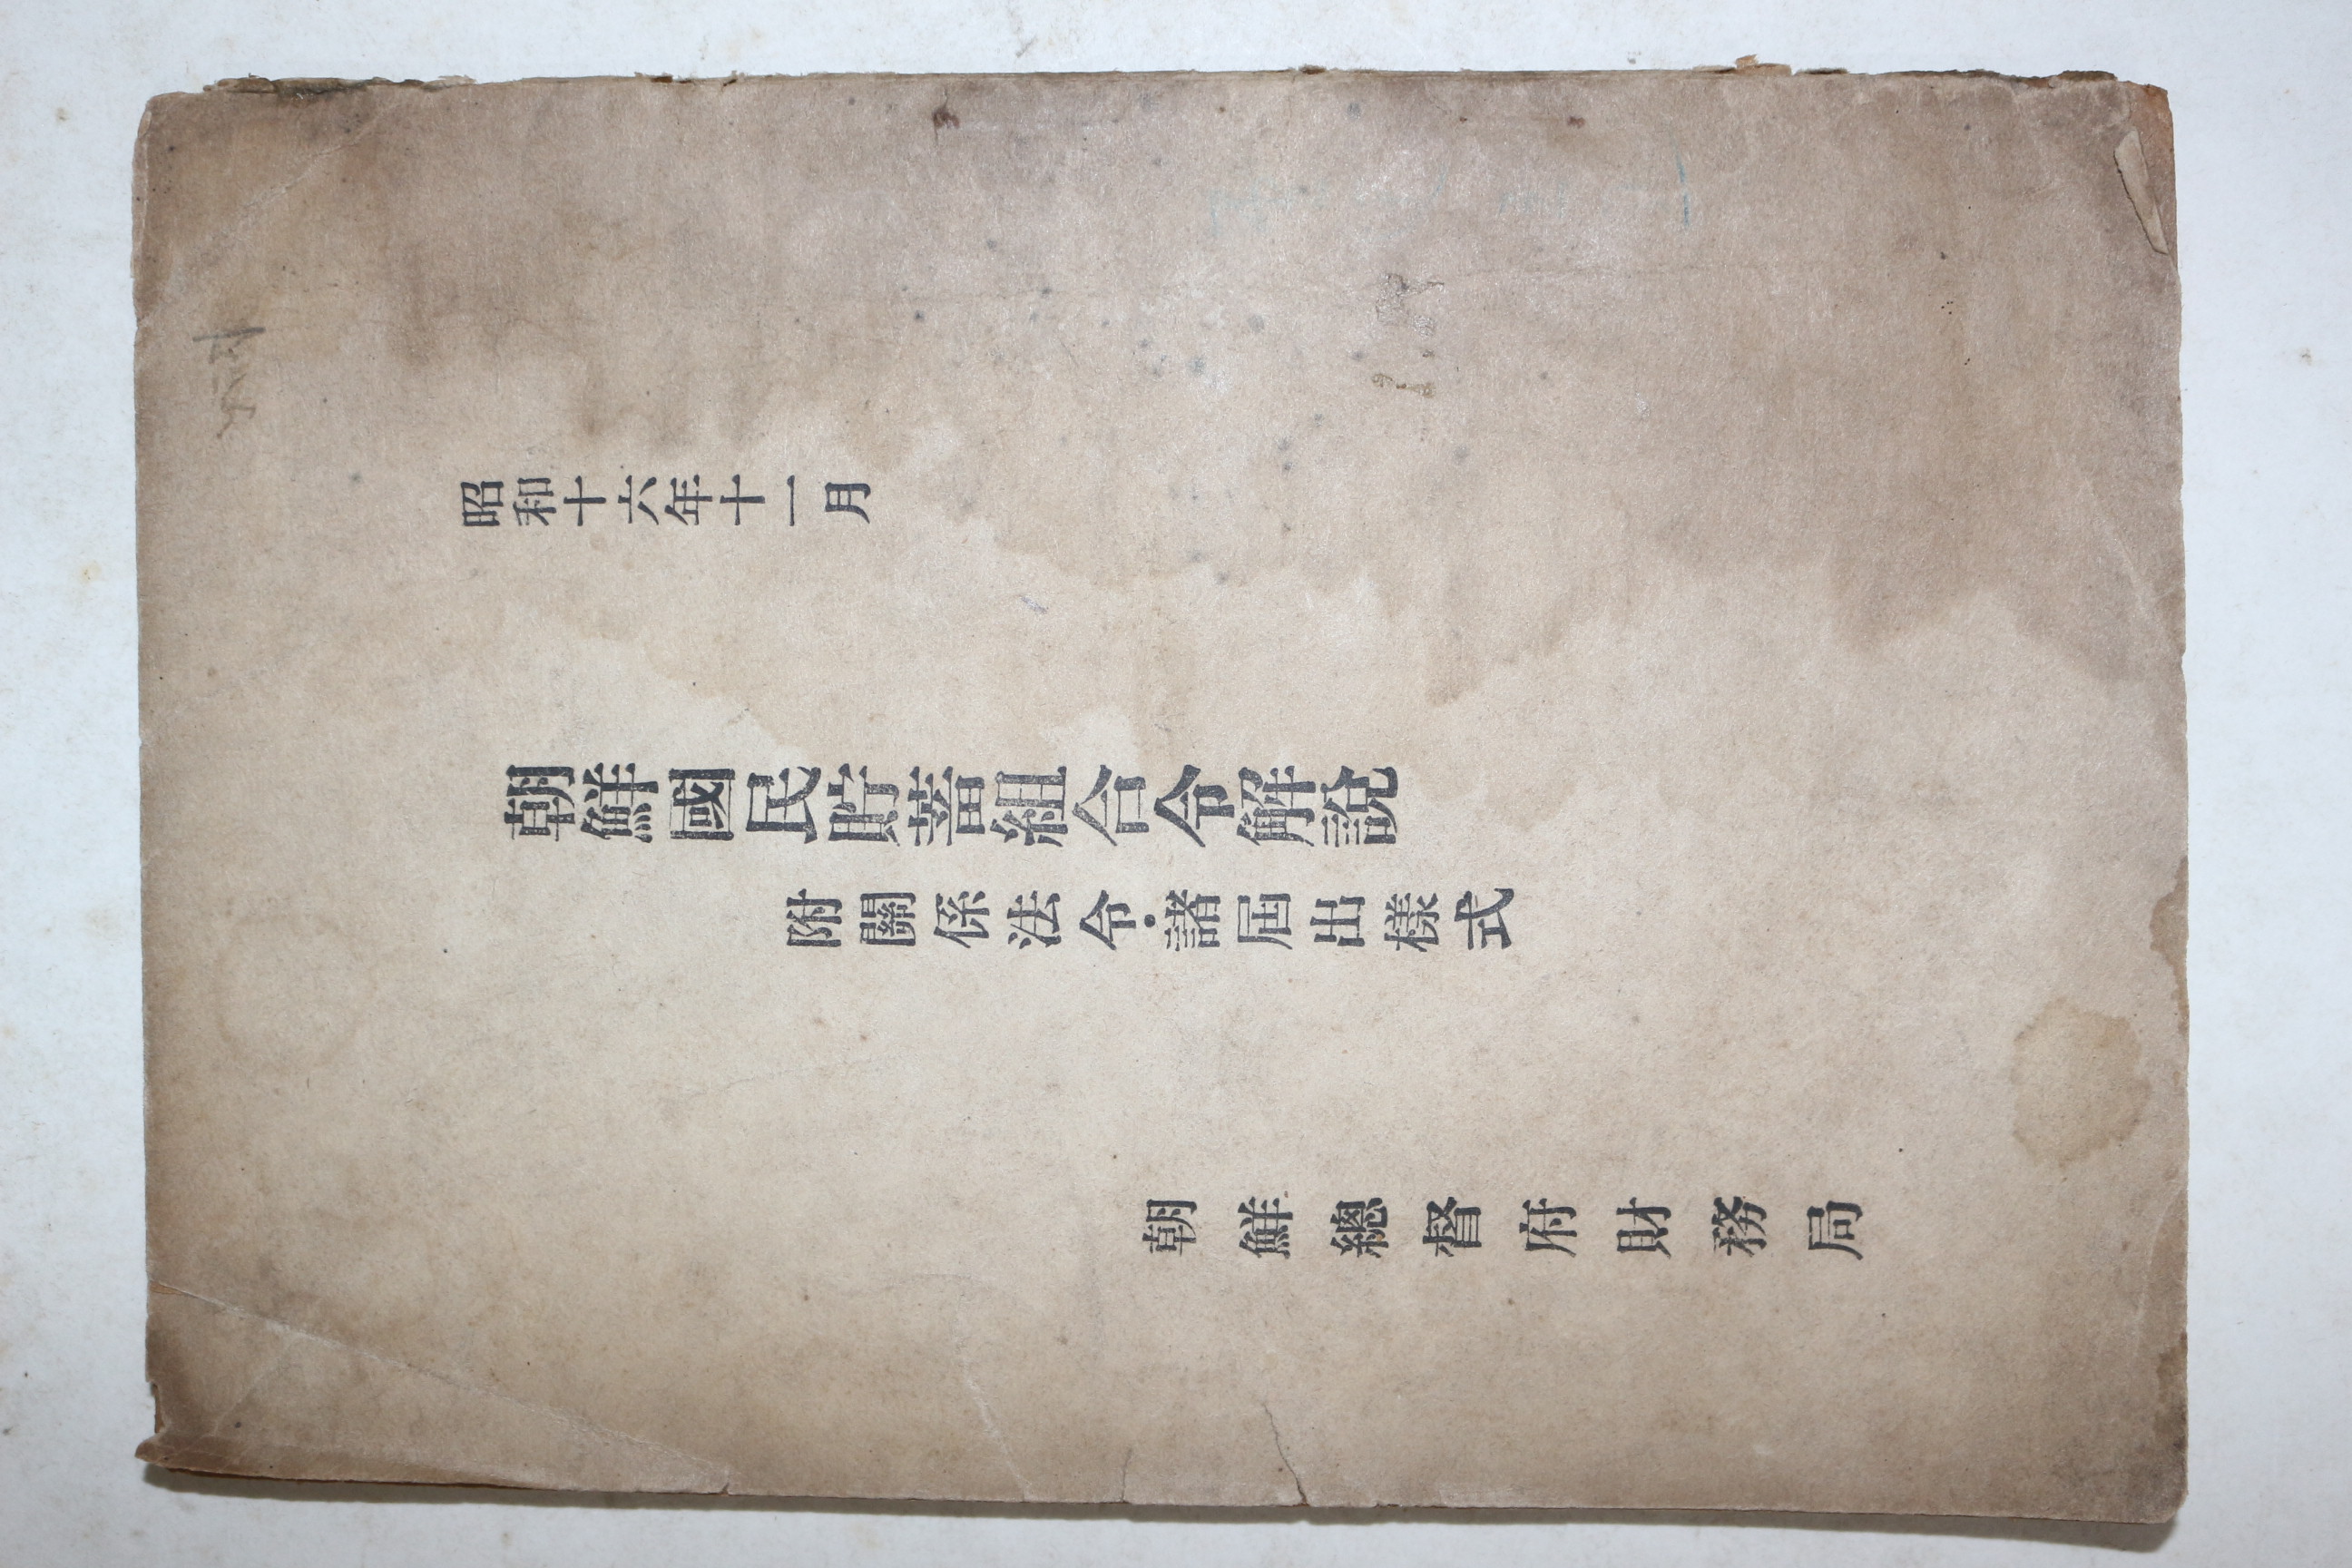 昭和十六年十一月
朝鮮國民貯蓄組合令解說
附關係法令·諸屆出樣式
朝鮮總督府財務局